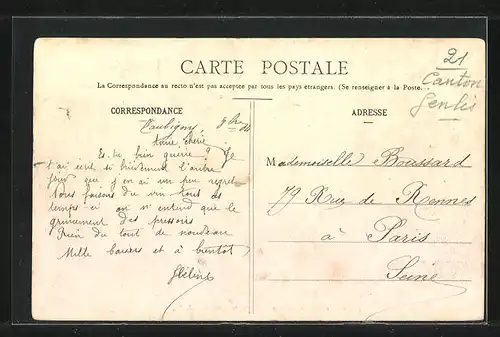 CARTE POSTALE
La Correspondance au recto n'est pas acceptée par tous les pays étrangers. (Se renseigner à la Poste.
21
Canton
Genlis
CORRESPONDANCE
ADRESSE
Anne chérie
Es-tu bien guérie ? Je
t'ai écrit si brièvement l'autre
jour que j'en ai un peu regret
Nous faisons du vin tous ces
temps-ci on n'entend que le
grincement des pressoirs
Rien du tout de nouveau
Mille baisers et à bientôt
Hélène
Mademoiselle Boussard
79 Rue de Rennes
à Paris
Seine